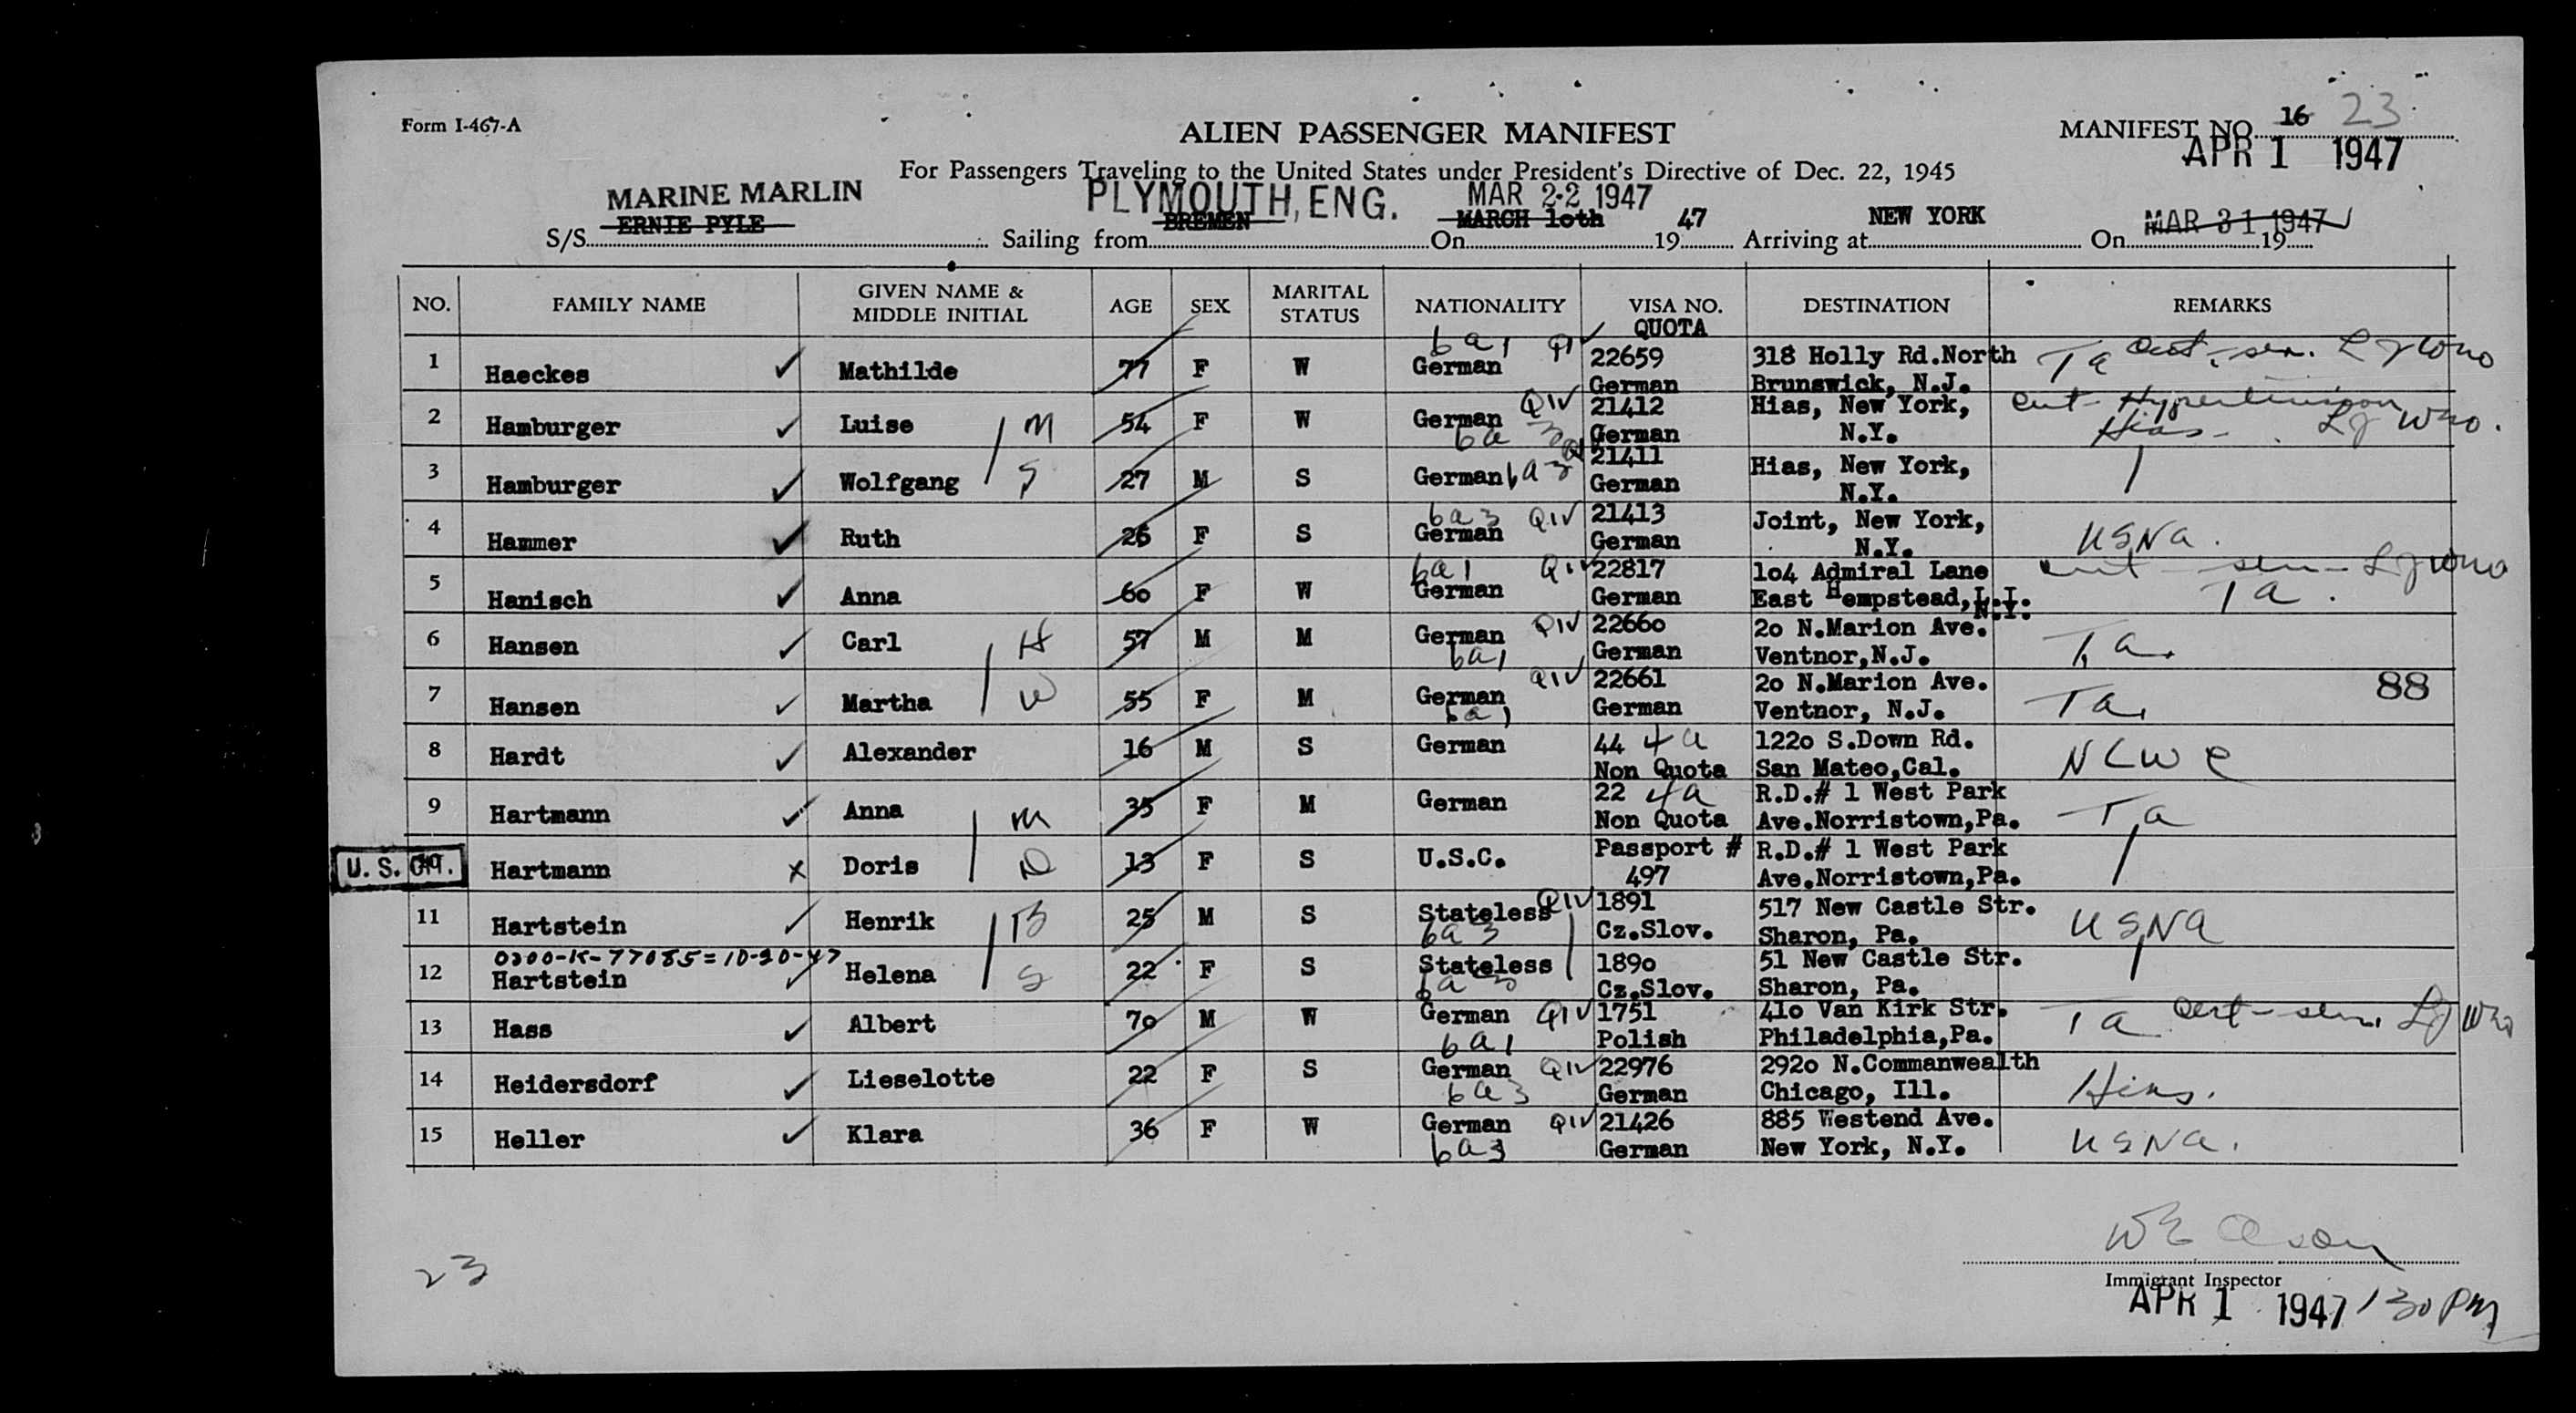 Form I-467-A
ALIEN PASSENGER MANIFEST
MANIFEST NO. 16 23
APR 1 1947
For Passengers Traveling to the United States under President's Directive of Dec. 22, 1945
MARINE MARLIN PLYMOUTH, ENG. MAR 22 1947
S/S ERNIE PYLE Sailing from BREMEN On MARCH 10th 19 47 Arriving at NEW YORK On MAR 31 1947 19
NO. FAMILY NAME GIVEN NAME & MIDDLE INITIAL AGE SEX MARITAL STATUS NATIONALITY VISA NO. DESTINATION REMARKS
QUOTA
1 Haeckes Mathilde 77 F W German 6a1 QIV 22659 318 Holly Rd.North Ta
German Brunswick, N.J.
2 Hamburger Luise M 54 F W German QIV 21412 Hias, New York, Cert Hypertension
6a3 German N.Y. Hias
3 Hamburger Wolfgang S 27 M S German 6a3 21411 Hias, New York,
German N.Y.
4 Hammer Ruth 26 F S German 6a3 QIV 21413 Joint, New York, USNA.
German N.Y.
5 Hanisch Anna 60 F W German 6a1 QIV 22817 104 Admiral Lane
German East Hempstead, L.I. N.Y. Ta.
6 Hansen Carl H 57 M M German QIV 22660 20 N.Marion Ave. Ta.
6a1 German Ventnor,N.J.
7 Hansen Martha W 55 F M German QIV 22661 20 N.Marion Ave. Ta. 88
6a1 German Ventnor, N.J.
8 Hardt Alexander 16 M S German 44 4a 1220 S.Down Rd. NCWC
Non Quota San Mateo,Cal.
9 Hartmann Anna M 35 F M German 22 4a R.D.# 1 West Park Ta
Non Quota Ave.Norristown,Pa.
U. S. CIT. Hartmann X Doris D 13 F S U.S.C. Passport # R.D.# 1 West Park
497 Ave.Norristown,Pa.
11 Hartstein Henrik B 25 M S Stateless QIV 1891 517 New Castle Str. USNA
6a3 Cz.Slov. Sharon, Pa.
0300-K-77085=10-20-47
12 Hartstein Helena S 22 F S Stateless 1890 51 New Castle Str.
6a3 Cz.Slov. Sharon, Pa.
13 Hass Albert 70 M W German QIV 1751 410 Van Kirk Str. Ta
6a1 Polish Philadelphia,Pa.
14 Heidersdorf Lieselotte 22 F S German QIV 22976 2920 N.Commanwealth Hias.
6a3 German Chicago, Ill.
15 Heller Klara 36 F W German QIV 21426 885 Westend Ave. USNA.
6a3 German New York, N.Y.
23
Immigrant Inspector
APR 1 1947 130 PM